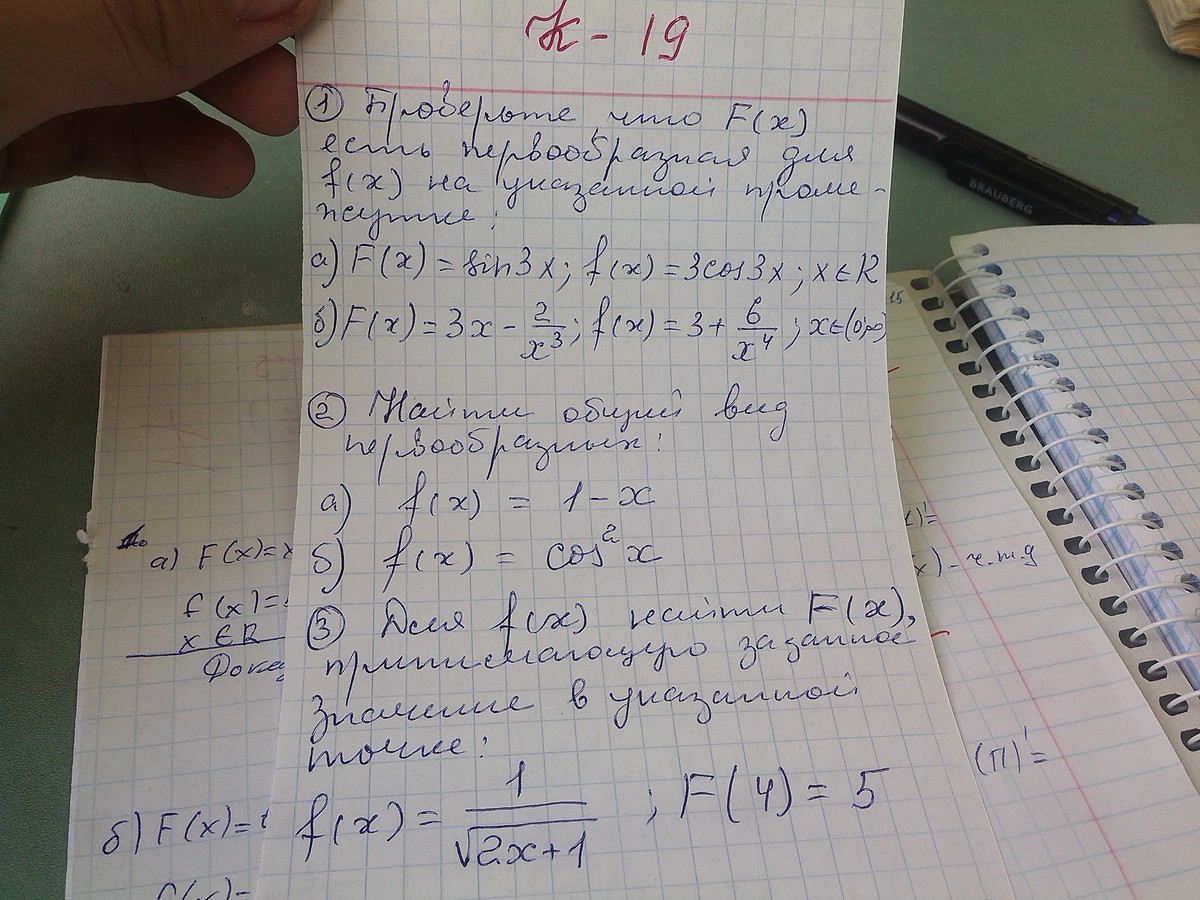 К - 19
① Проверьте, что F(x)
есть первообразная для
f(x) на указанной проме-
жутке:
а) F(x) = sin3x; f(x) = 3cos3x; x∈R
б) F(x) = 3x - 2/x³; f(x) = 3 + 6/x⁴; x∈(0;∞)
② Найти общий вид
первообразных:
а) f(x) = 1-x
б) f(x) = cos²x
③ Для f(x) найти F(x),
принимающую заданное
значение в указанной
точке:
f(x) = 1/√2x+1 ; F(4) = 5
а) F(x)=x
f(x)=
x∈R
Дока
б) F(x)=
BRAUBERG
15
)'=
x) - ч.т.д
(П)'=